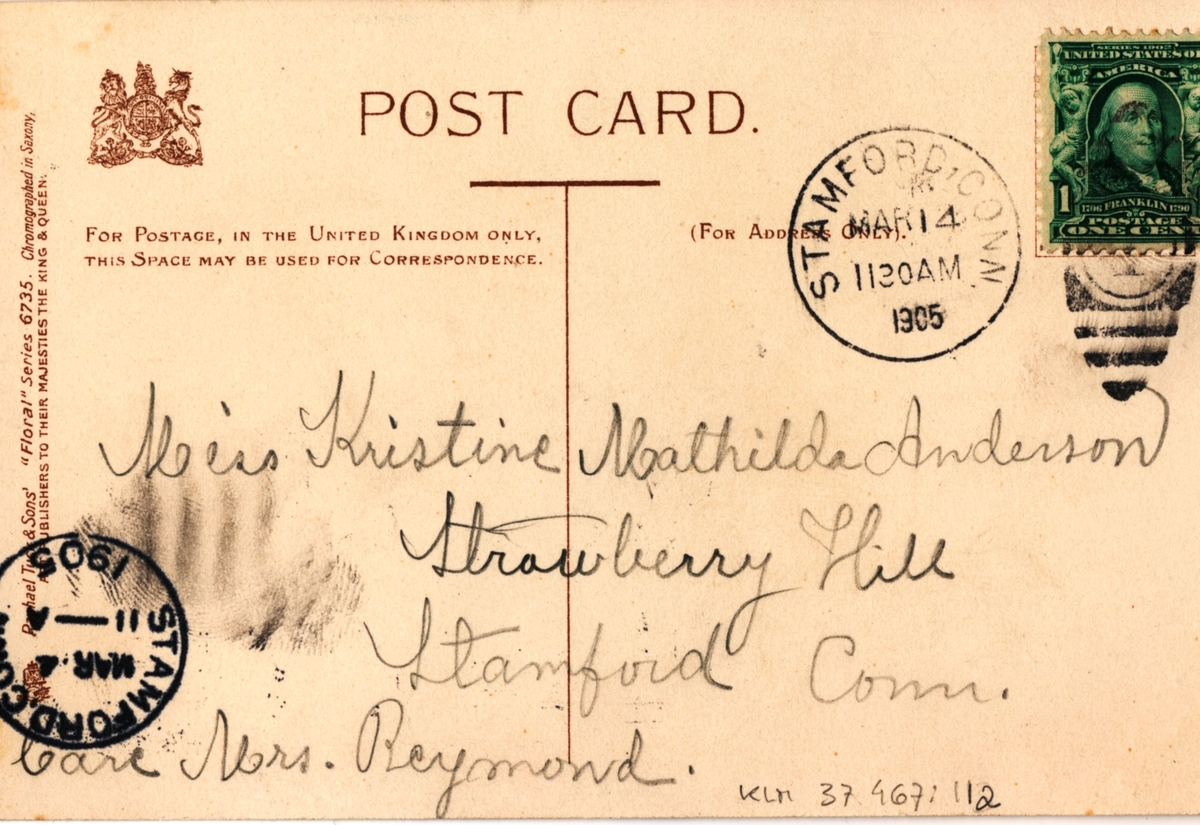 POST CARD.
FOR POSTAGE, IN THE UNITED KINGDOM ONLY,
THIS SPACE MAY BE USED FOR CORRESPONDENCE.
(FOR ADDRESS ONLY).
SERIES 1902
UNITED STATES OF
AMERICA
1
1706 FRANKLIN 1790
POSTAGE
ONE CEN
STAMFORD, CONN
MAR 14
1130AM
1905
Miss Kristine Mathilda Anderson
Strawberry Hill
Stamford Conn.
Care Mrs. Reymond.
KLM 37 467: 112
Raphael Tuck & Sons' "Floral" Series 6735. Chromographed in Saxony,
PUBLISHERS TO THEIR MAJESTIES THE KING & QUEEN.
STAMFORD
MAR
11 — A
1905